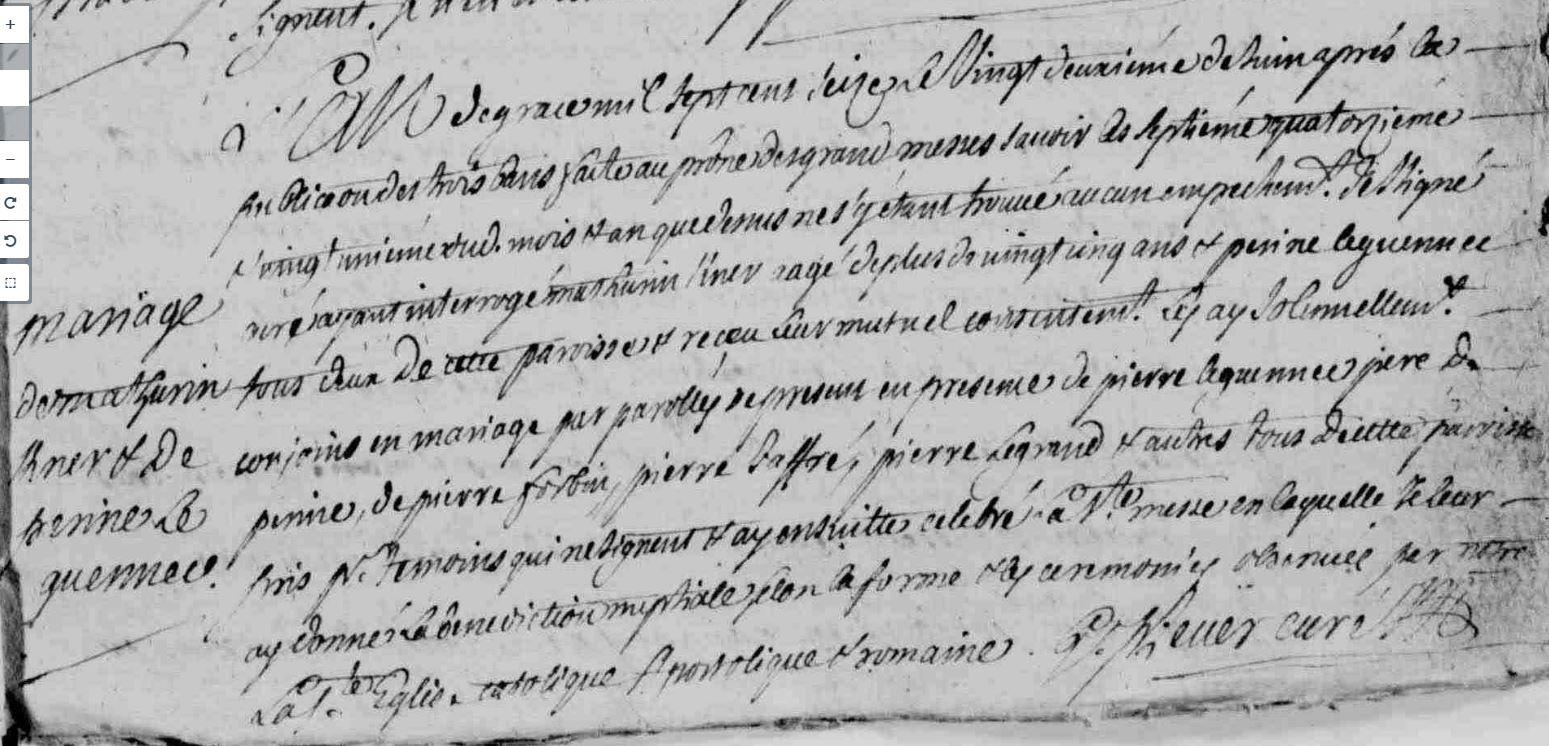 signent.
L'An de grace mil sept cent seize le Vingt deuxiéme de Juin aprés la
publica͠on des trois bans faite au prône des grand messes savoir les septiéme quatorziéme
& vingt uniéme dud. mois & an que dessus ne s'y étant trouvé aucun empechemt. Je Ssigné
curé ayant interrogé mathurin agé de plus de vingt cinq ans & perine le guennec
tous deux de cette paroisse & receu leur mutuel consentemt. Les ay solemnellemt.
conjoins en mariage par parolles de present en presence de pierre le guennec pere de
perine, de pierre forbin, pierre Jaffré, pierre Legrand & autres tous de cette paroisse
pris pr. temoins qui ne signent & ay ensuitte celebré la Ste. messe en laquelle Je leur
ay donné la benediction nuptialle selon la forme & les ceremonies observees par notre
mere la Ste Eglise catolique Apostolique & romaine. curé
mariage
de mathurin
& de
perine Le
guennec.